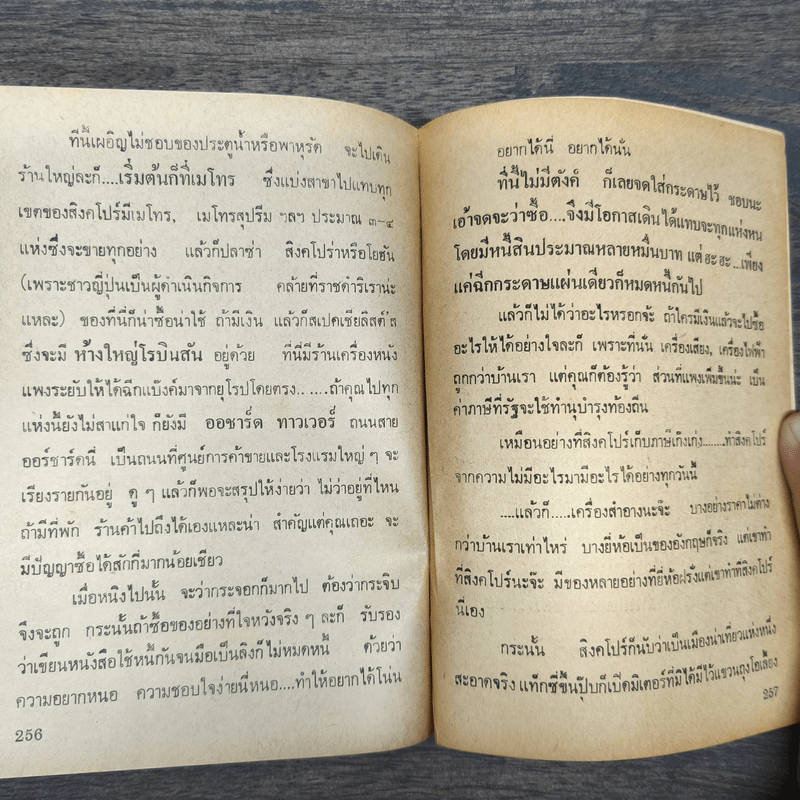 ทีนี้เผอิญไม่ชอบของประตูน้ำหรือพาหุรัด จะไปเดิน
ร้านใหญ่ละก็....เริ่มต้นก็ที่เมโทร ซึ่งแบ่งสาขาไปแทบทุก
เขตของสิงคโปร์มีเมโทร, เมโทรสุปรีม ฯลฯ ประมาณ ๓-๔
แห่งซึ่งจะขายทุกอย่าง แล้วก็ปลาซ่า สิงคโปร่าหรือโยฮัน
(เพราะชาวญี่ปุ่นเป็นผู้ดำเนินกิจการ คล้ายที่ราชดำริเราน่ะ
แหละ) ของที่นี่ก็น่าซื้อน่าใช้ ถ้ามีเงิน แล้วก็สเปคเชียลิสต์'ส
ซึ่งจะมี ห้างใหญ่โรบินสัน อยู่ด้วย ที่นี่มีร้านเครื่องหนัง
แพงระยับให้ได้ฉีกแบ๊งค์มาจากยุโรปโดยตรง......ถ้าคุณไปทุก
แห่งนี้ยังไม่สาแก่ใจ ก็ยังมี ออชาร์ด ทาวเวอร์ ถนนสาย
ออร์ชาร์ดนี่ เป็นถนนที่ศูนย์การค้าขายและโรงแรมใหญ่ ๆ จะ
เรียงรายกันอยู่ ดู ๆ แล้วก็พอจะสรุปให้ง่ายว่า ไม่ว่าอยู่ที่ไหน
ถ้ามีที่พัก ร้านค้าไปถึงได้เองแหละน่า สำคัญแต่คุณเถอะ จะ
มีปัญญาซื้อได้สักกี่มากน้อยเชียว
เมื่อหนิงไปนั้น จะว่ากระจอกก็มากไป ต้องว่ากระจิบ
จึงจะถูก กระนั้นถ้าซื้อของอย่างที่ใจหวังจริง ๆ ละก็ รับรอง
ว่าเขียนหนังสือใช้หนี้กันจนมือเป็นลิงก็ไม่หมดหนี้ ด้วยว่า
ความอยากหนอ ความชอบใจง่ายนี่หนอ....ทำให้อยากได้โน่น
256
อยากได้นี่ อยากได้นั่น
ทีนี้ไม่มีตังค์ ก็เลยจดใส่กระดาษไว้ ชอบนะ
เอ้าจดจะว่าซื้อ....จึงมีโอกาสเดินได้แทบจะทุกแห่งหน
โดยมีหนี้สินประมาณหลายหมื่นบาท แต่ ฮะ ฮะ...เพียง
แค่ฉีกกระดาษแผ่นเดียวก็หมดหนี้กันไป
แล้วก็ไม่ได้ว่าอะไรหรอกจ้ะ ถ้าใครมีเงินแล้วจะไปซื้อ
อะไรให้ได้อย่างใจละก็ เพราะที่นั่น เครื่องเสียง, เครื่องไฟฟ้า
ถูกกว่าบ้านเรา แต่คุณก็ต้องรู้ว่า ส่วนที่แพงเพิ่มขึ้นน่ะ เป็น
ค่าภาษีที่รัฐจะใช้ทำนุบำรุงท้องถิ่น
เหมือนอย่างที่สิงคโปร์เก็บภาษีเก๊งเก่ง.......ทำสิงคโปร์
จากความไม่มีอะไรมามีอะไรได้อย่างทุกวันนี้
....แล้วก็.....เครื่องสำอางนะจ๊ะ บางอย่างราคาไม่ต่าง
กว่าบ้านเราเท่าไหร่ บางยี่ห้อเป็นของอังกฤษก็จริง แต่เขาทำ
ที่สิงคโปร์นะจ๊ะ มีของหลายอย่างที่ยี่ห้อฝรั่งแต่เขาทำที่สิงคโปร์
นี่เอง
กระนั้น สิงคโปร์ก็นับว่าเป็นเมืองน่าเที่ยวแห่งหนึ่ง
สะอาดจริง แท็กซี่ขึ้นปุ๊บก็เปิดมิเตอร์ที่มีได้มีไว้แขวนถุงโอเลี้ยง
257